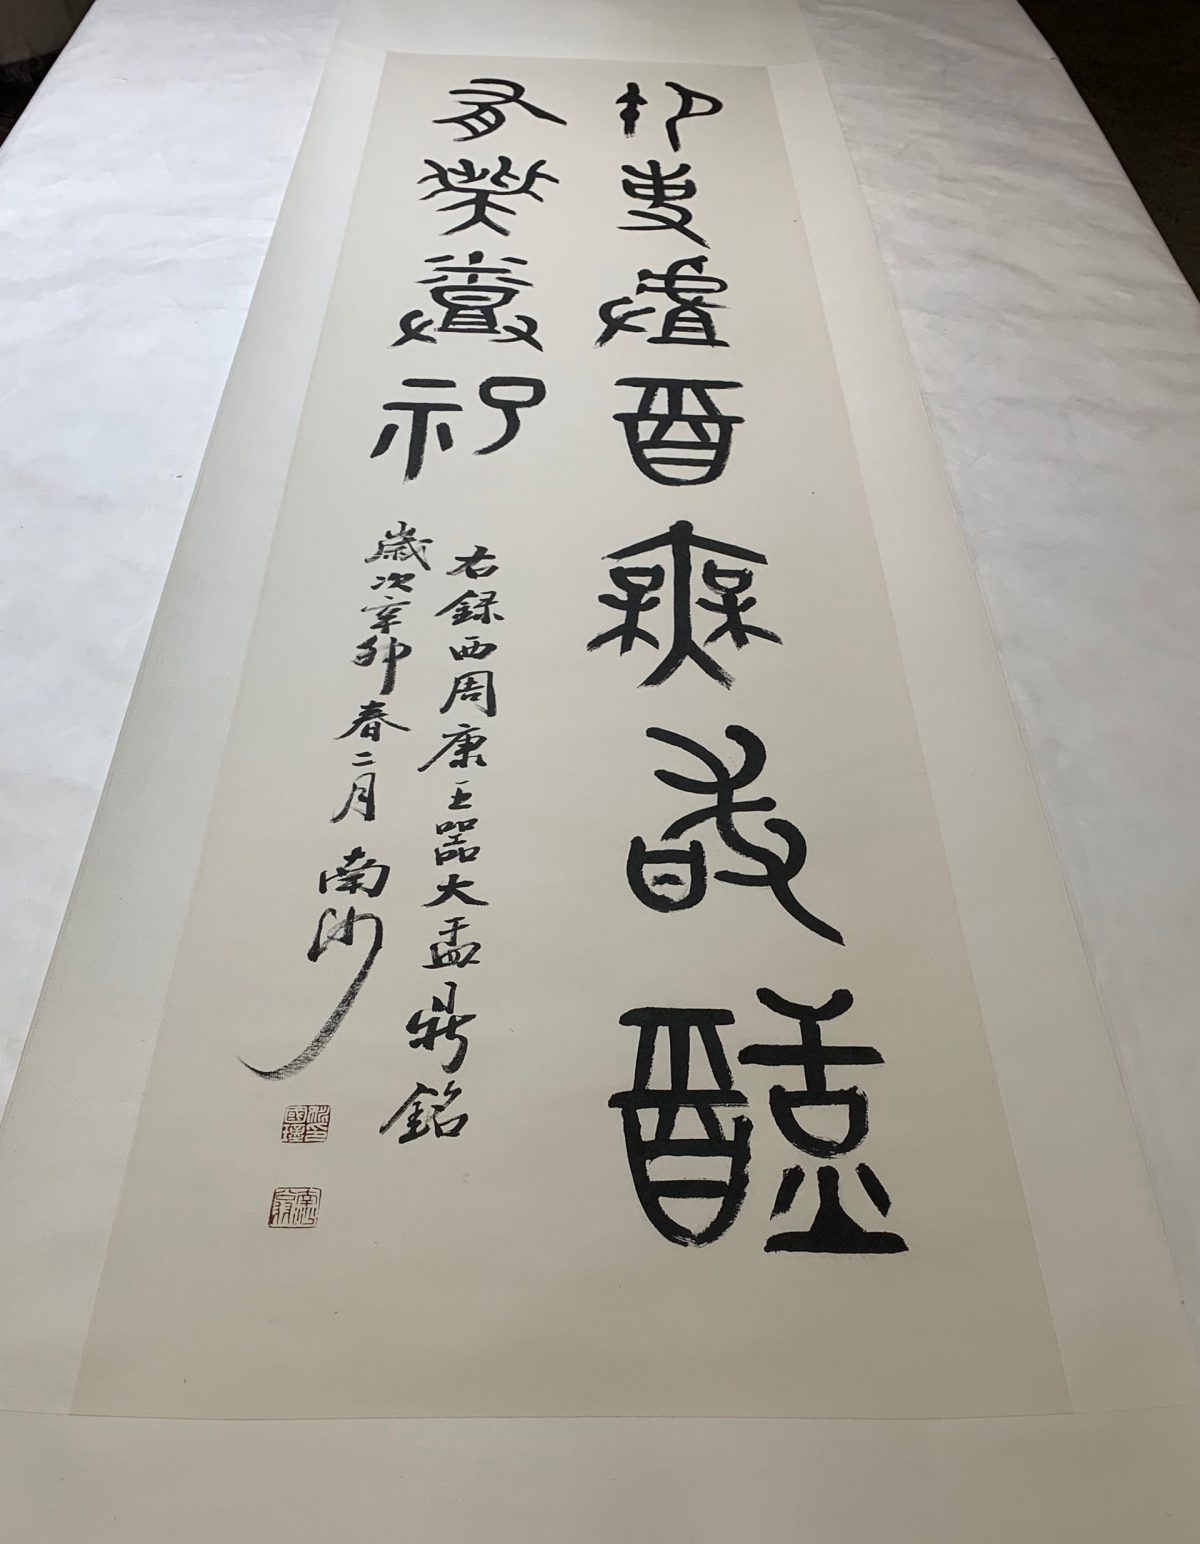 御事𠭯酉無敢
有烝祀
右録西周康王器大盂鼎銘
歲次辛卯春二月 南沙